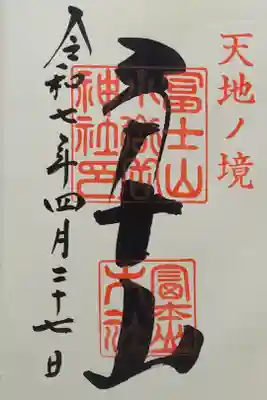 天地ノ境
富士山
富士山
神社印
令和七年四月二十七日